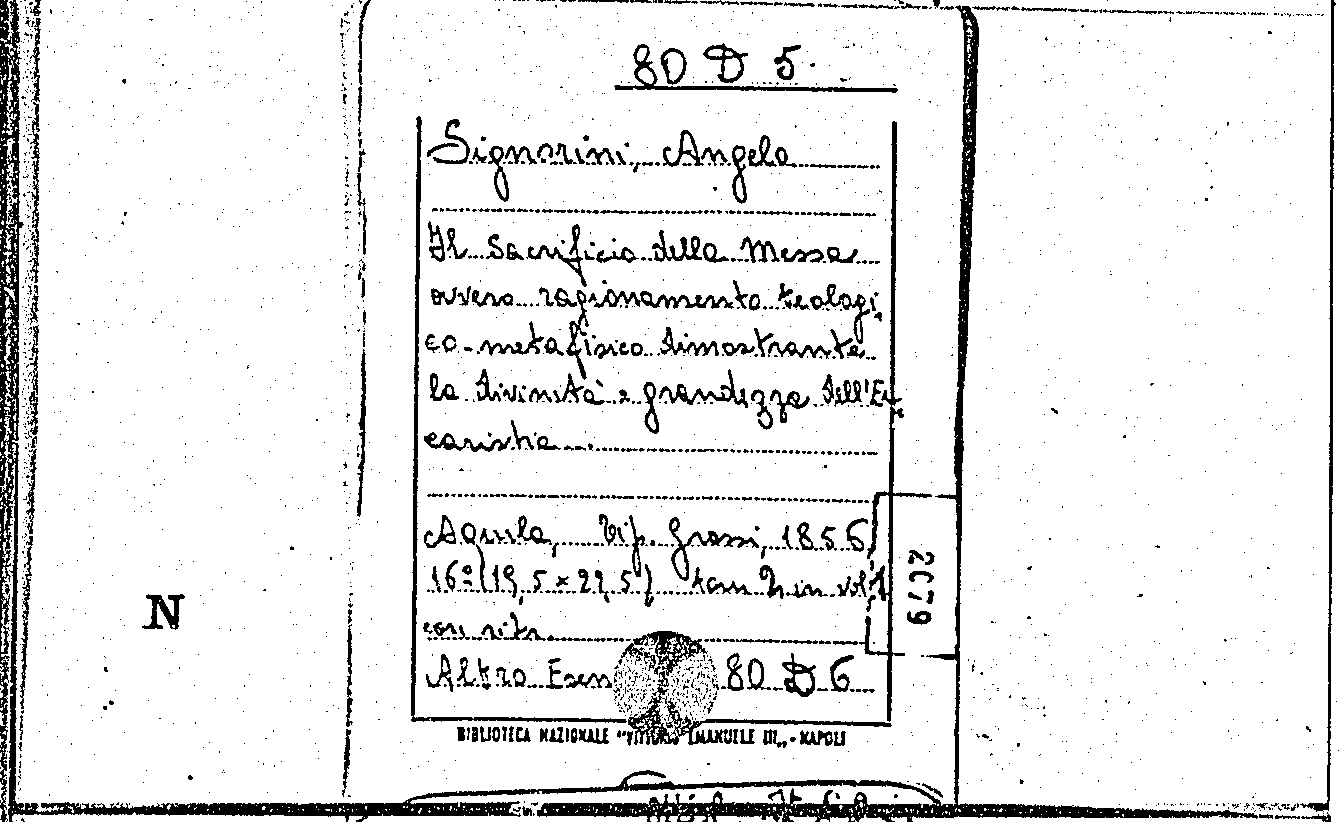 80 D 5.
Signorini, Angelo
Il Sacrificio della Messa
ovvero ragionamento teologi,
co-metafisico dimostrante
la divinità e grandezza dell'Eu,
caristia....
Aquila, Tip. Grossi, 1856
16º (19,5 x 22,5) tom 2 in vol 1
con ritr.
2079
Altro Esem 80 D 6
BIBLIOTECA NAZIONALE "VITTORIO EMANUELE III„ - NAPOLI
N